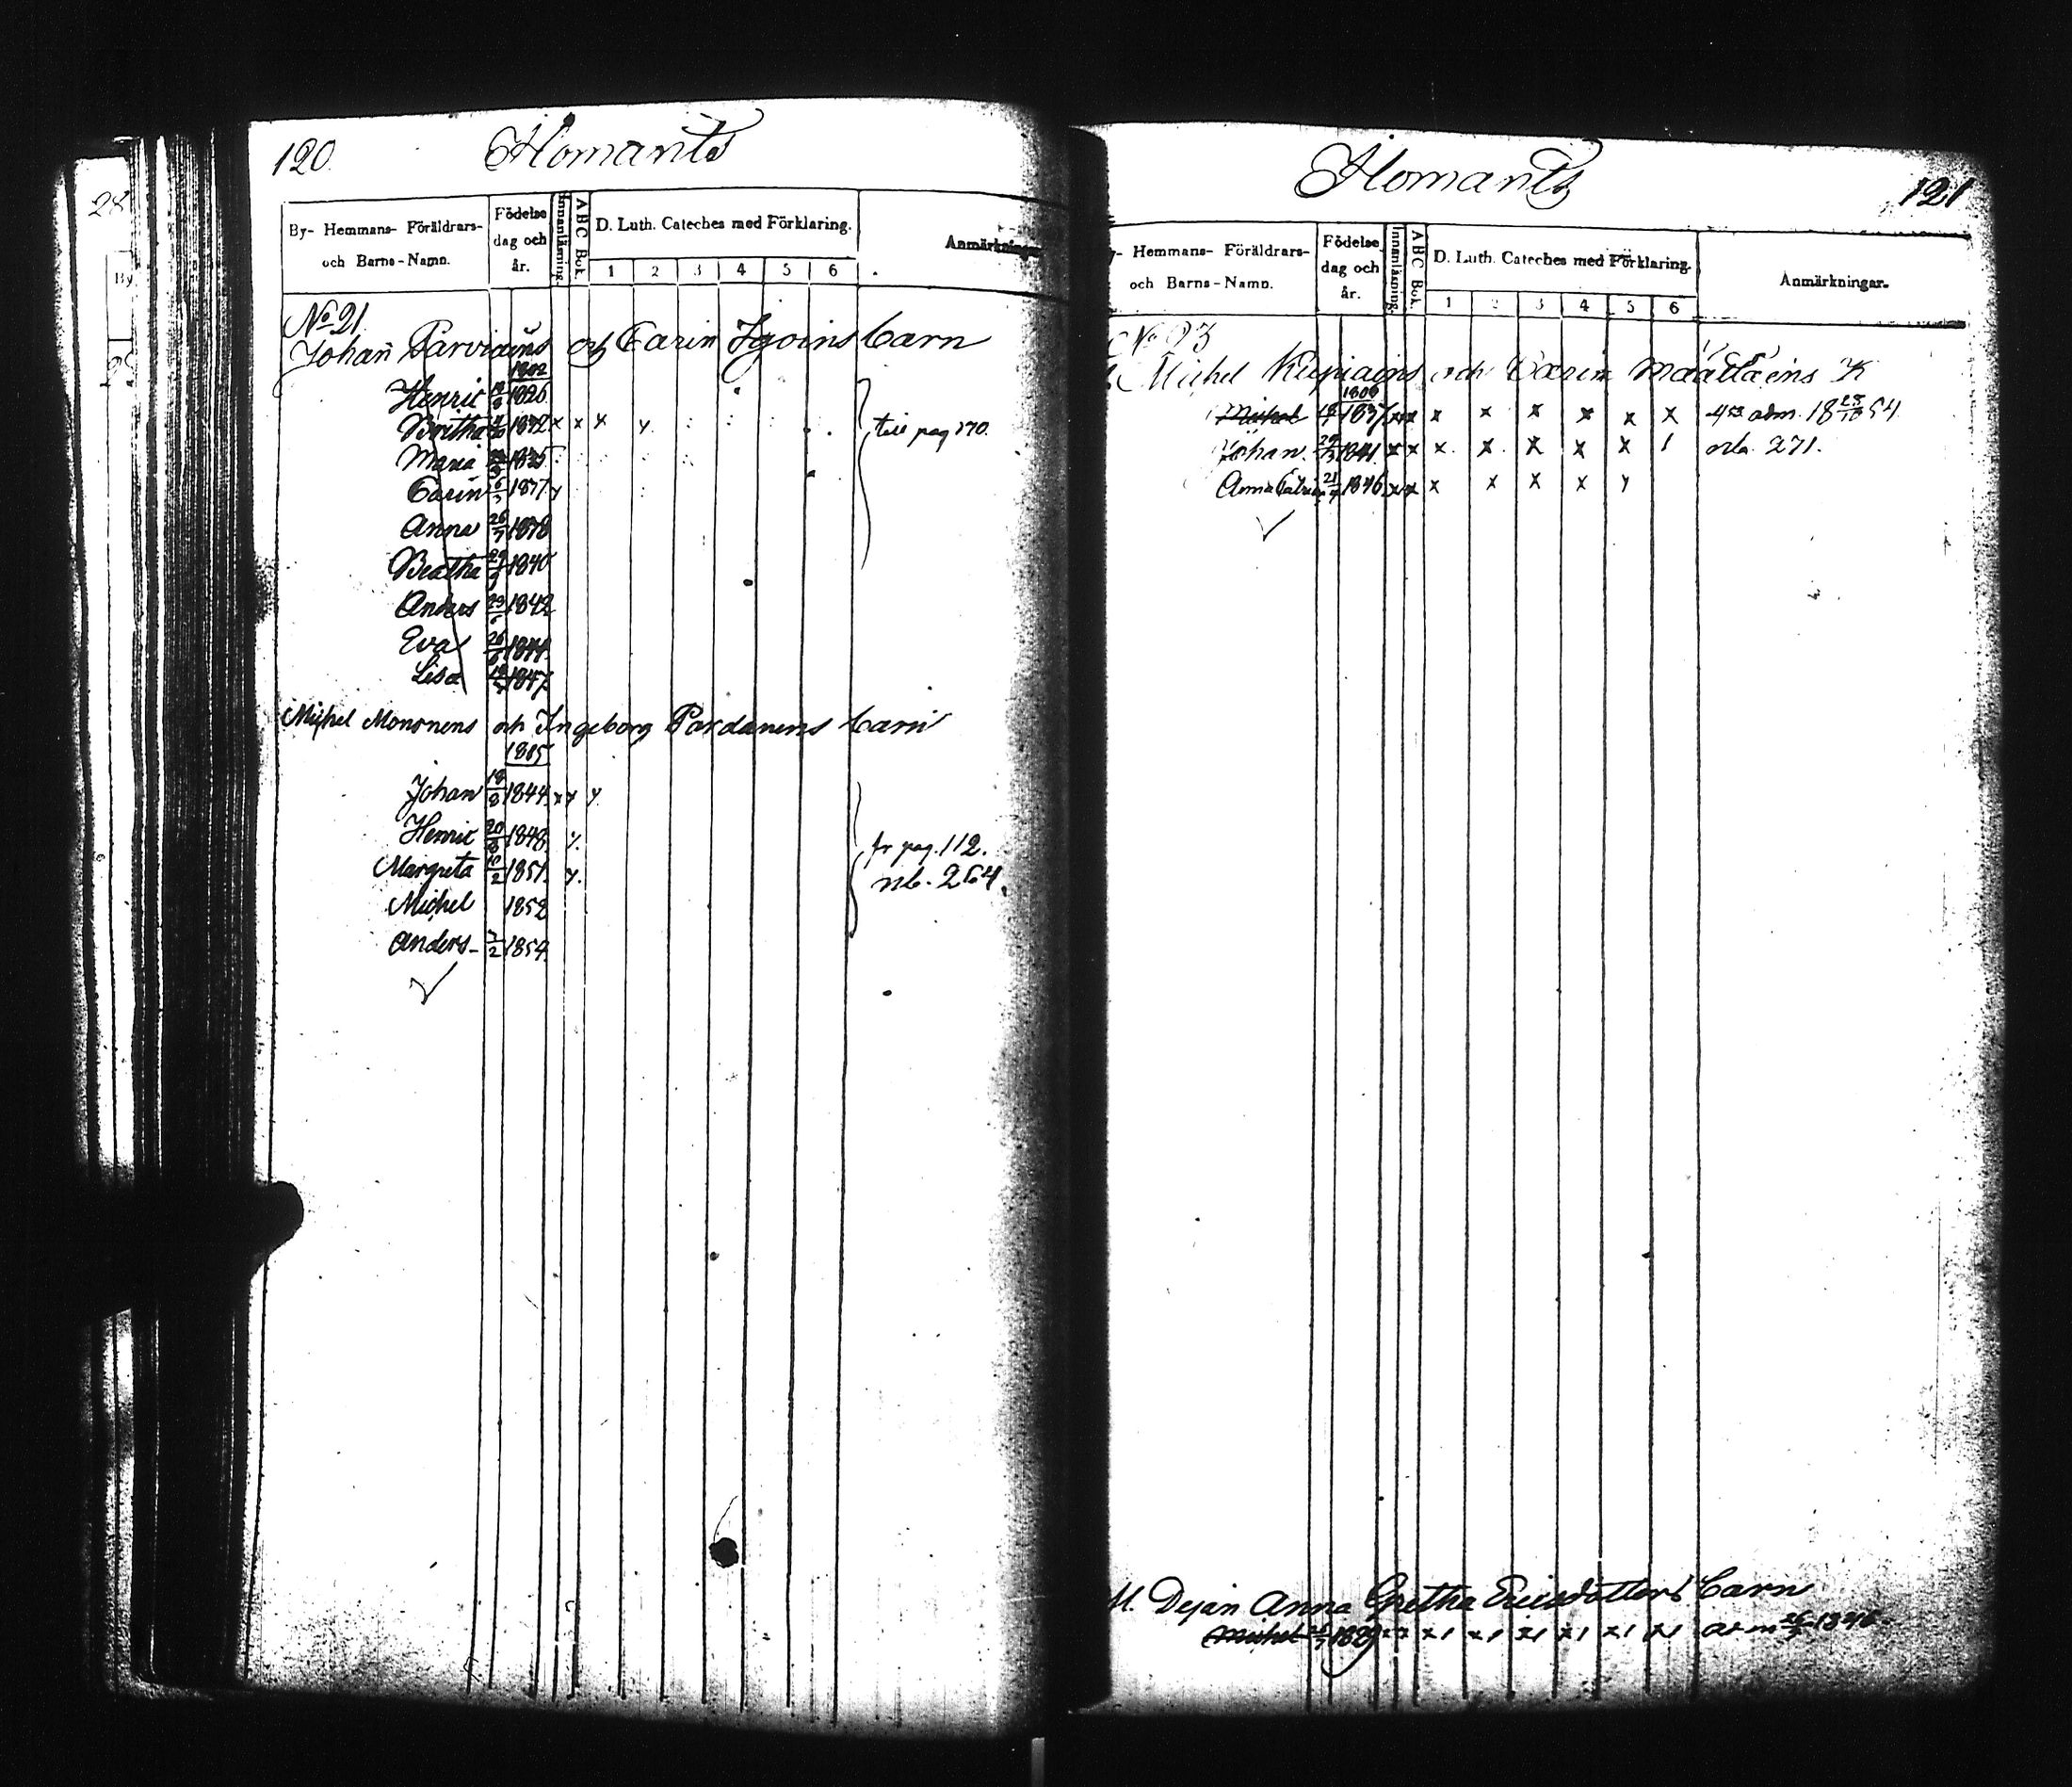 28
By
120.
Homants
By- Hemmans- Föräldrars-
och Barns-Namn.
Födelse
dag och
år.
Innanläsning.
A B C Bok.
D. Luth. Cateches med Förklaring.
1 2 3 4 5 6
Anmärkningar
No 21
Johan Parviains och Carin Barn
1802
Henric 1826
Britha 1832 x x x y till pag 170.
Maria 1835
Carin 6 1837 y
Anna 26/7 1838
Beatha 1840
Anders 23/6 1842
Eva 26/6 1844
Lisa 1847
Michel Mononens och Ingeborg Pardanens Barn
1805
Johan 18/8 1844 x y y
Henric 20 1848 y. fr pag. 112.
Margreta 2 1851 y. nb. 264.
Michel 1852
Anders - 3/2 1854
Homants
121
Hemmans- Föräldrars-
och Barns-Namn.
Födelse
dag och
år.
Innanläsning.
A B C Bok.
D. Luth. Cateches med Förklaring.
1 2 3 4 5 6
Anmärkningar.
No 23
Michel Kupiains och Carin Määttäeins K
1806
Michel 1837 x x x x x x x x adm. 18 28/10 54
Johan 1841 x x x. x. x x x 1 nb. 271.
Anna 1846 x x x x x x y
M. Dejan Anna Gretha Ericsdotters Barn
Michel 1829 x x x1 x1 x1 x1 x1 x1 adm 1846.